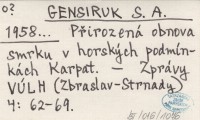 o?
GENSIRUK S. A.
1958... Přirozená obnova
smrku v horských podmín-
kách Karpat. — Zprávy
VÚLH (Zbraslav-Strnady)
4: 62-69.